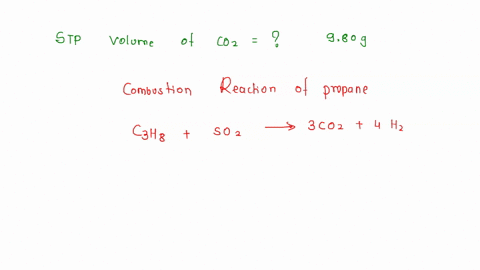 STP Volume of CO2 = ? 9.80g
Combustion Reaction of propane
C3H8 + 5O2 → 3CO2 + 4 H2